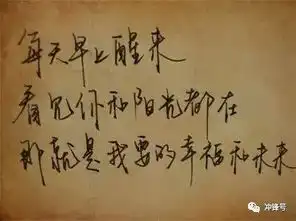 每天早上醒来
看见你和阳光都在
那就是我要的幸福和未来
冲锋号